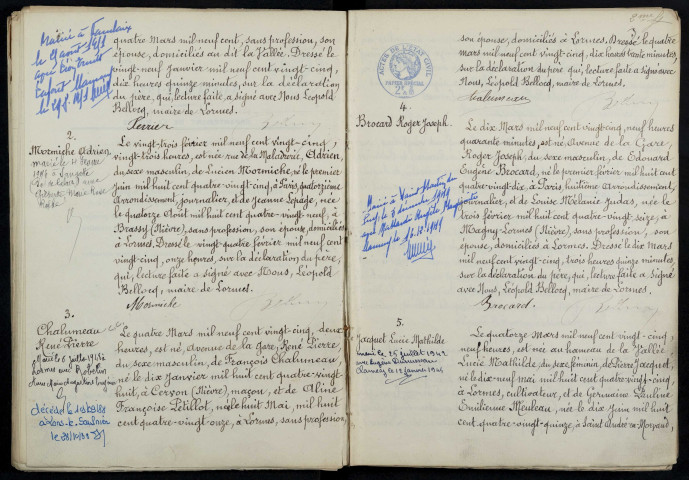 Marié à
le 29 août 1925
quatre Mars mil neuf cent, sans profession, son
épouse, domiciliés au dit la Vallée. Dressé le
vingt-neuf Janvier mil neuf cent vingt-cinq,
dix heures quinze minutes, sur la déclaration
du père, qui, lecture faite, a signé avec Nous Léopold
Bellocq, maire de Lormes.
Perrier
2.
Mormiche Adrien
marié le 11
Le vingt-trois février mil neuf cent vingt-cinq,
vingt-trois heures, est née rue de la Maladrerie, Adrien,
du sexe masculin, de Lucien Mormiche, né le premier
juin mil huit cent quatre-vingt-cinq, à Paris, quatorzième
arrondissement, journalier, et de Jeanne Lepage, née
le quatorze Août mil huit cent quatre-vingt-neuf, à
Brassy (Nièvre), sans profession, son épouse, domiciliés
à Lormes. Dressé le vingt-quatre février mil neuf cent
vingt-cinq, onze heures, sur la déclaration du père,
qui, lecture faite a signé avec Nous, Léopold
Bellocq, maire de Lormes.
Mormiche
3.
Chalumeau
René Pierre
Marié le 6 juillet 1946
décédé le
à Lons-le-Saunier
Le quatre Mars mil neuf cent vingt-cinq, deux
heures, est né, avenue de la Gare, René Pierre,
du sexe masculin, de François Chalumeau,
né le dix Janvier mil huit cent quatre-vingt-
huit, à Cervon (Nièvre), maçon, et de Aline
Françoise Petillot, née le huit Mai, mil huit
cent quatre-vingt-onze, à Lormes, sans profession,
son épouse, domiciliés à Lormes. Dressé le quatre
mars mil neuf cent vingt-cinq, dix heures trente minutes,
sur la déclaration du père qui, lecture faite a signé avec
Nous, Léopold Bellocq, maire de Lormes.
Chalumeau
ACTES DE L'ÉTAT CIVIL
4.
Brocard Roger Joseph.
Marié à Saint Martin du
Puy le
Le dix Mars mil neuf cent vingt-cinq, neuf heures
quarante minutes, est né, Avenue de la Gare,
Roger Joseph, du sexe masculin, de Edouard
Eugène Brocard, né le premier février mil huit cent
quatre-vingt-dix, à Paris, huitième Arrondissement,
journalier, et de Louise Mélanie Judas, née le
trois février mil huit cent quatre-vingt-seize, à
Magny-Lormes (Nièvre), sans profession, son
épouse, domiciliés à Lormes. Dressé le dix Mars
mil neuf cent vingt-cinq, trois heures quinze minutes,
sur la déclaration du père, qui, lecture faite a signé
avec Nous, Léopold Bellocq, maire de Lormes.
Brocard.
5.
Jacquet Lucie Mathilde
marié le 25 juillet 1942
Le quatorze Mars mil neuf cent vingt-cinq,
neuf heures, est née au hameau de la Vallée,
Lucie Mathilde, du sexe féminin, de Pierre Jacquet,
né le dix-neuf mai mil huit cent quatre-vingt-cinq,
à Lormes, cultivateur, et de Germaine Pauline
Emilienne Meuleau, née le dix Juin mil huit
cent quatre-vingt-quinze, à Saint André-en-Morvand,